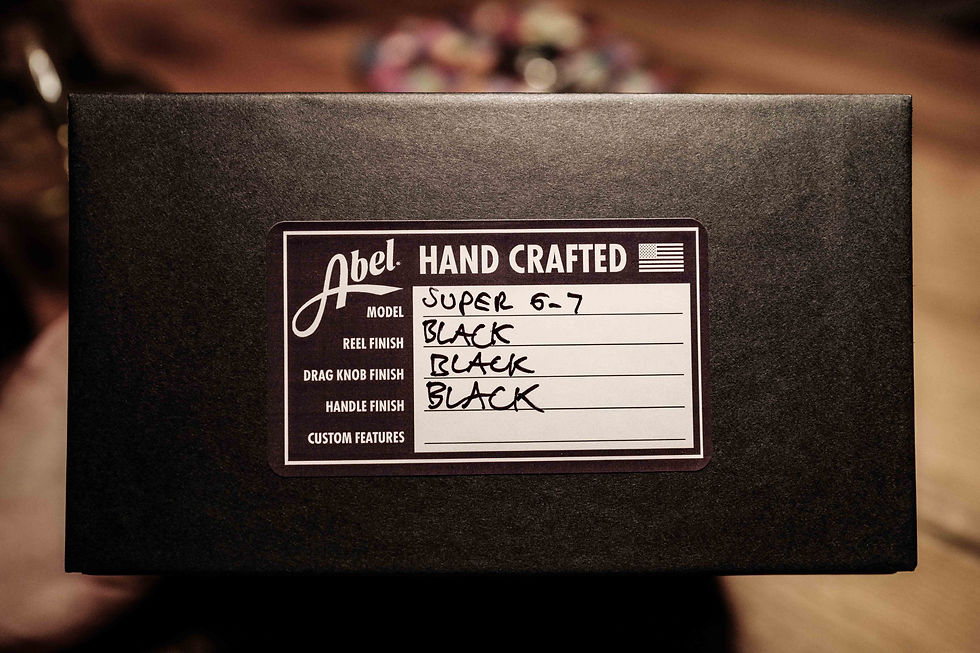 Abel. HAND CRAFTED
MODEL SUPER 6-7
REEL FINISH BLACK
DRAG KNOB FINISH BLACK
HANDLE FINISH BLACK
CUSTOM FEATURES